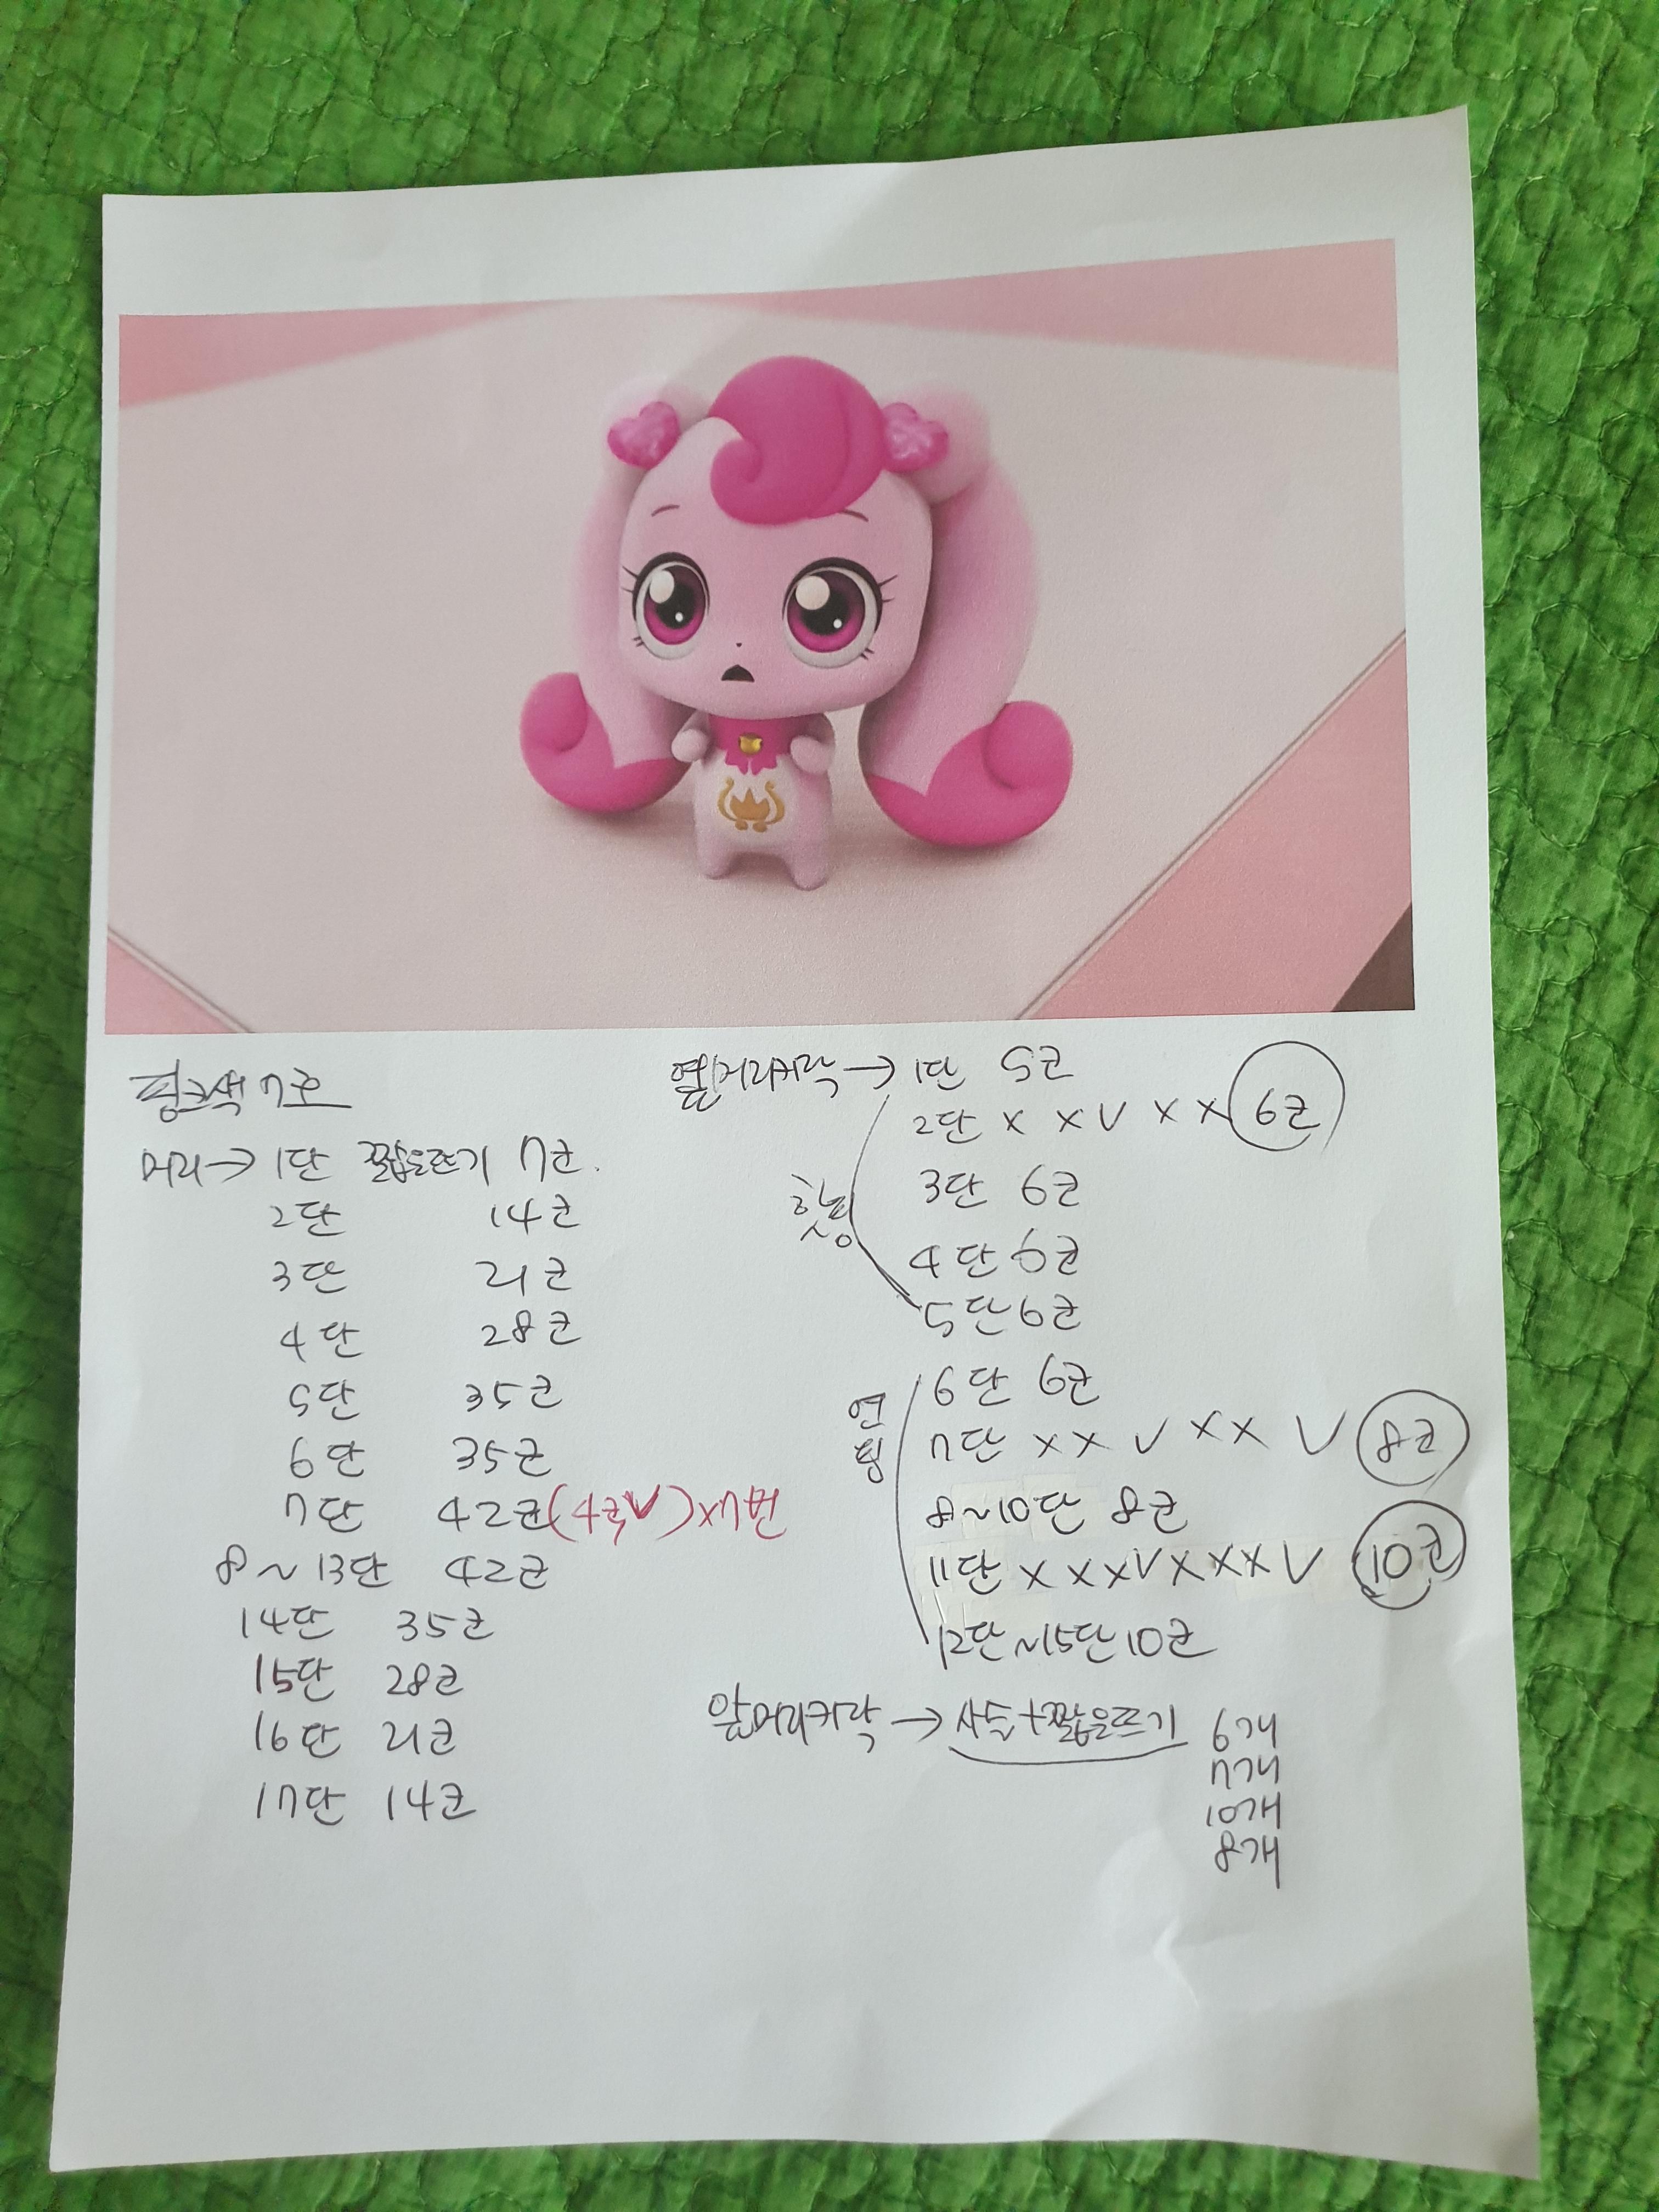 핑크색 7호
머리→ 1단 짧은뜨기 7코.
2단 14코
3단 21코
4단 28코
5단 35코
6단 35코
7단 42코(4코, V)x7번
8~13단 42코
14단 35코
15단 28코
16단 21코
17단 14코
옆머리카락→ 1단 5코
2단 x x V x x 6코
3단 6코
핫핑
4단 6코
5단 6코
6단 6코
연핑
7단 x x V x x V 8코
8~10단 8코
11단 x x x V x x x V 10코
12단~15단 10코
앞머리카락→ 사슬+짧은뜨기 6개
7개
10개
8개